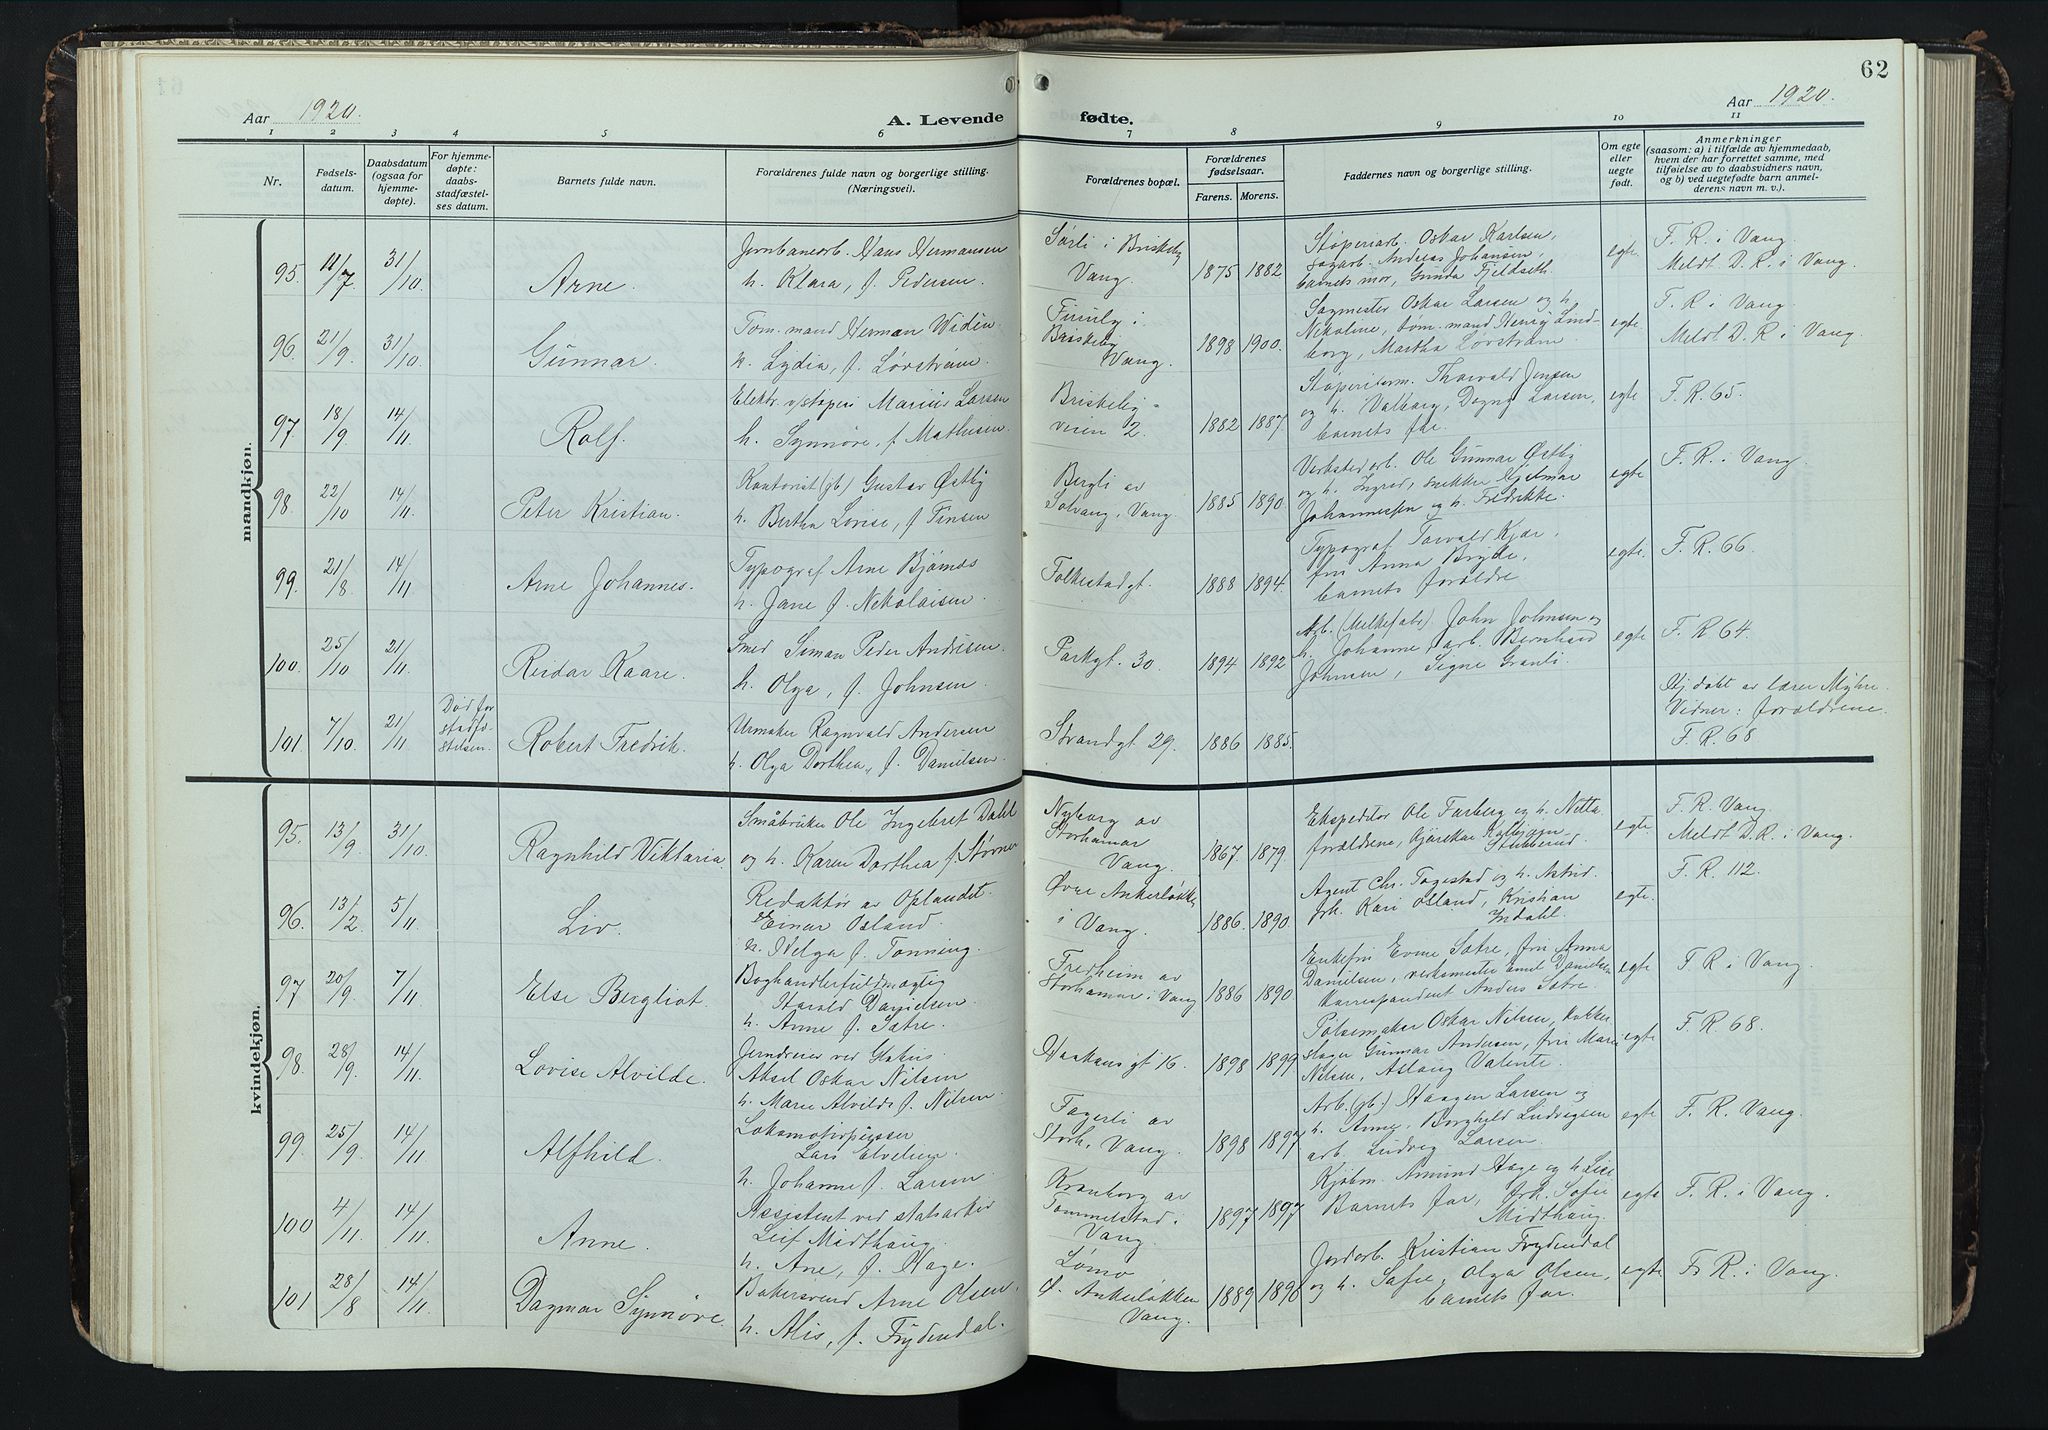 62
Aar 1920.
A. Levende fødte.
Aar 1920.
1 2 3 4 5 6 7 8 9 10 11
Nr.
Fødsels-
datum.
Daabsdatum
(ogsaa for
hjemme-
døpte).
For hjemme-
døpte:
daabs-
stadfæstel-
ses datum.
Barnets fulde navn.
Forældrenes fulde navn og borgerlige stilling.
(Næringsvei).
Forældrenes bopæl.
Forældrenes
fødselsaar.
Farens. Morens.
Faddernes navn og borgerlige stilling.
Om egte
eller
uegte
født.
Anmerkninger
(saasom: a) i tilfælde av hjemmedaab,
hvem der har forrettet samme, med
tilføielse av to daabsvidners navn,
og b) ved uegtefødte barn anmel-
derens navn m. v.).
mandkjøn.
95. 11/7 31/10. Arne.
Jernbanearb. Hans Hermansen
h. Klara, f. Pedersen.
Sørli i Briskeby
Vang.
1875 1882
Støperiarb. Oskar Karlsen,
sagarb. Andreas Johansen,
barnets mor, Gunda Fjeldseth.
egte.
F. R. i Vang.
Meldt D. R. i Vang.
96. 21/9. 31/10. Gunnar.
Tøm. mand Herman Widen
h. Lydia, f. Løvstrøm.
Briskeby
Vang.
1898 1900.
Sagmester Oskar Larsen og h.
Nikoline, tøm. mand Henry Lind-
borg, Martha Lövström.
egte.
F. R. i Vang.
Meldt D. R. i Vang.
97. 18/9 14/11. Rolf.
Elektr. v/støperi Marius Larsen
h. Synnøve, f. Mathisen.
Briskeby-
veien 2.
1882 1887.
Støperiform. Thorvald Jensen
og h. Valborg, Dagny Larsen,
barnets far.
egte
F. R. 65.
98. 22/10 14/11. Peter Kristian.
Kontorist (gb) Gustav Østby
h. Bertha Lovise, f. Finsen
Bergli av
Solvang, Vang.
1885 1890.
Verkstedarb. Ole Gunnar Østby
og h. Ingrid, snekker Hjelmar
Johannessen og h. Fredrikke.
egte
F. R. i Vang.
99. 21/8 14/11. Arne Johannes.
Typograf Arne Bjørnås
h. Jane f. Nikolaisen.
Folkestadgt.
1888 1894.
Typograf Torvald Kjær,
fru Anna Bryde,
barnets forældre
egte.
F. R. 66.
100. 25/10 21/11. Reidar Kaare.
Smed Simon Peder Andresen.
h. Olga, f. Johnsen.
Parkgt. 30.
1894 1892
Arb. (Melkefabr) John Johnsen og
h. Johanne, arb. Bernhard
Johnsen, Signe Granli.
egte
F. R. 64.
101 7/10. 21/11
Død før
stadfæ-
stelsen.
Robert Fredrik.
Urmaker Ragnvald Andersen
h. Olga Dorthea, f. Danielsen.
Strandgt 29.
1886 1885.
Hj. døbt av lærer Myhre.
Vidner: forældrene.
F. R. 68
kvindekjøn.
95. 13/9. 31/10. Ragnhild Viktoria
Småbruker Ole Ingebret Dahl
og h. Karen Dorthea f. Stövner
Nyborg av
Storhamar
Vang.
1867. 1879.
Ekspeditør Ole Furberg og h. Netta
forældrene, Gjørskar Kolbjørn
Stubberud.
egte
F. R. Vang.
Meldt D. R. i Vang.
96. 13/2. 5/11. Liv.
Redaktør av Oplandet.
Einar Osland.
h. Helga f. Tonning.
Øvre Ankerløkken
i Vang.
1886. 1890.
Agent Chr. Tagestad og h. Astrid.
frk. Kari Osland, Kristian
Indahl.
egte.
F. R. 112.
97 20/9. 7/11. Else Bergliot.
Boghandlerfuldmægtig
Harald Danielsen.
h. Anne f. Sætre.
Fredheim av
Storhamar i Vang
1886 1890.
Enkefru Evine Sætre, fru Anna
Danielsen, verksmester Emil Danielsen
Korrespondent Anders Sætre.
egte
F. R i Vang.
98. 28/9. 14/11. Lovise Alvilde.
Jerndreier ved Hakus.
Aksel Oskar Nilsen
h. Marie Alvilde f. Nilsen.
Haakonsgt 16.
1898 1899
Pølsemaker Oskar Nilsen, kobber
slager Gunnar Andersen, fru Marie
Nilsen, Aslaug Valente.
egte
F. R 68.
99. 25/9. 14/11. Alfhild.
Lokomotivpusser
Lars Elvelien.
h. Johanne f. Larsen
Fagerli av
Storh., Vang.
1898 1897.
Arb. (gb.) Haagen Larsen og
h. Anne, Borghild Ludvigsen
arb. Ludvig Larsen.
egte
F. R. Vang.
100 4/11. 14/11. Anne.
Assistent ved statsarkiv
Leif Midthaug.
h. Ane, f. Hage.
Kronborg av
Tommelstad i
Vang.
1897 1897
Kjøbm. Amund Hage og h. Lise
Barnets far, frk. Sofie
Midthaug.
egte
F. R. i Vang.
101 28/8 14/11. Dagmar Synnøve.
Bakersvend Arne Olsen.
h. Alis, f. Frydendal.
Lømo
Ø. Ankerløkken
Vang.
1889 1898
Jordarb. Kristian Frydendal
og h. Sofie, Olga Olsen,
barnets far.
egte
F. R. i Vang.